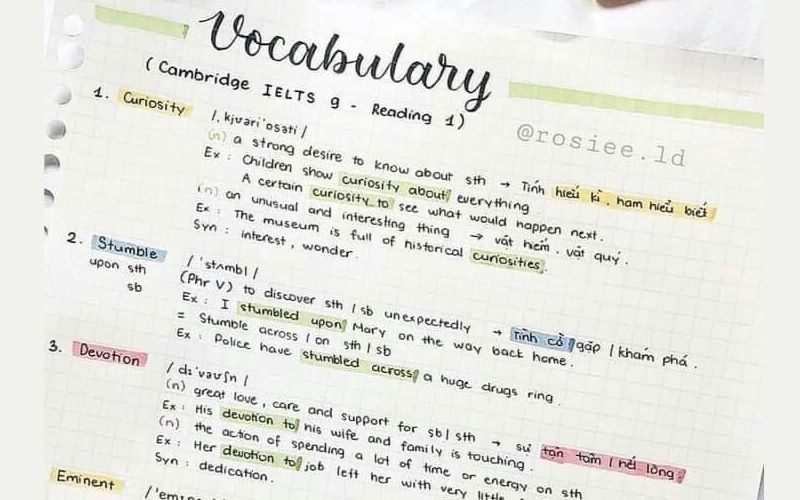 Vocabulary
( Cambridge IELTS 9 - Reading 1 )
@rosiee.ld
1. Curiosity /ˌkjʊəriˈɒsəti/
(n) a strong desire to know about sth → Tính hiếu kì, ham hiểu biết
Ex : Children show curiosity about everything.
A certain curiosity to see what would happen next.
(n) an unusual and interesting thing → vật hiếm, vật quý.
Ex : The museum is full of historical curiosities.
Syn : interest, wonder.
2. Stumble /ˈstʌmbl/
upon sth (Phr V) to discover sth / sb unexpectedly → Tình cờ gặp / khám phá.
sb Ex : I stumbled upon Mary on the way back home.
= Stumble across / on sth / sb
Ex : Police have stumbled across a huge drugs ring.
3. Devotion /dɪˈvəʊʃn/
(n) great love, care and support for sb / sth → sự tận tâm / hết lòng.
Ex : His devotion to his wife and family is touching.
(n) the action of spending a lot of time or energy on sth
Ex : Her devotion to job left her with very little
Syn : dedication.
Eminent